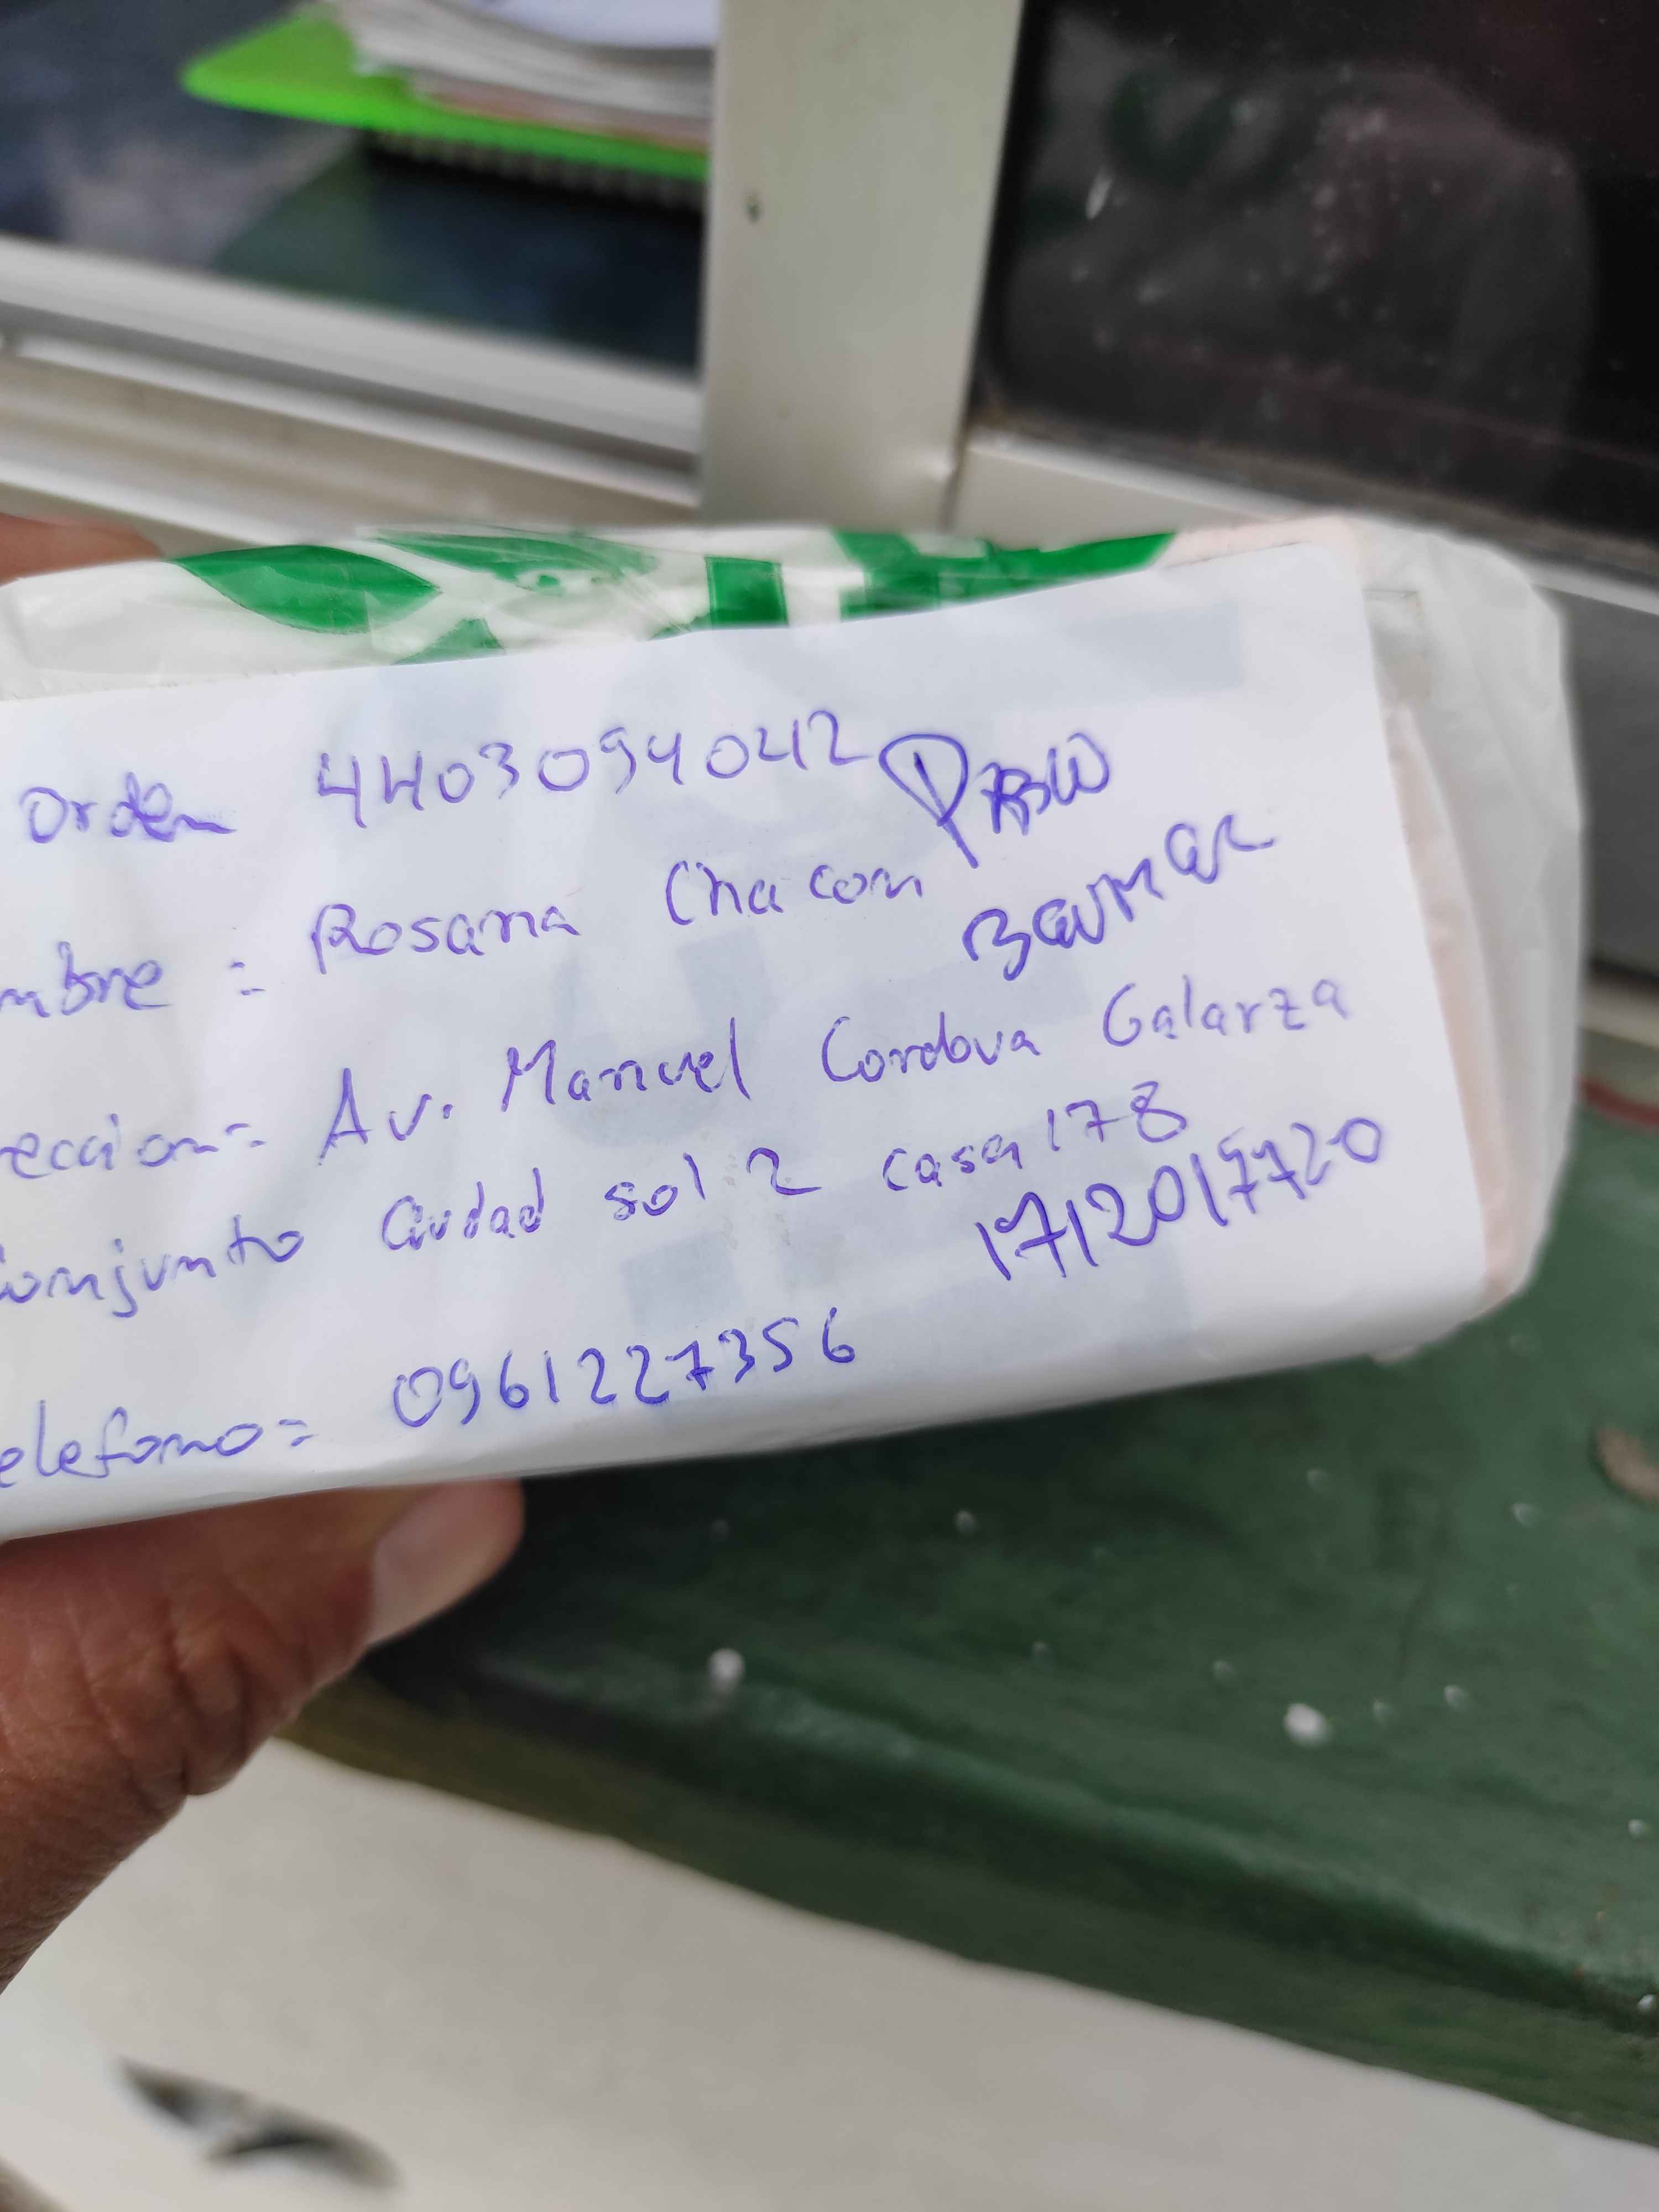 Orden 4403094042 PABLO
mbre = Rosana Chacon
eccion= Av. Manuel Cordova Galarza
Conjunto Ciudad sol 2 casa 178
1712017720
elefono= 0961227356